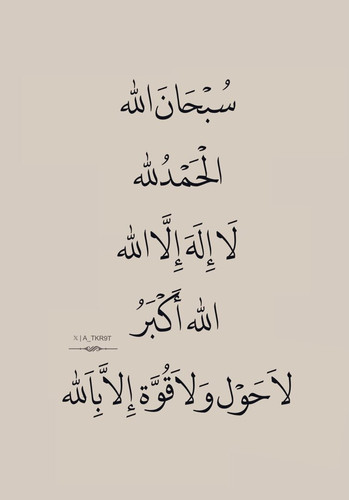 سُبْحَانَ الله
الْحَمْدُ لله
لَا إِلَهَ إِلَّا الله
الله أَكْبَرُ
𝕏 | A_TKR9T
لَا حَوْل وَلَا قُوَّة إِلاَّ بِاَلله